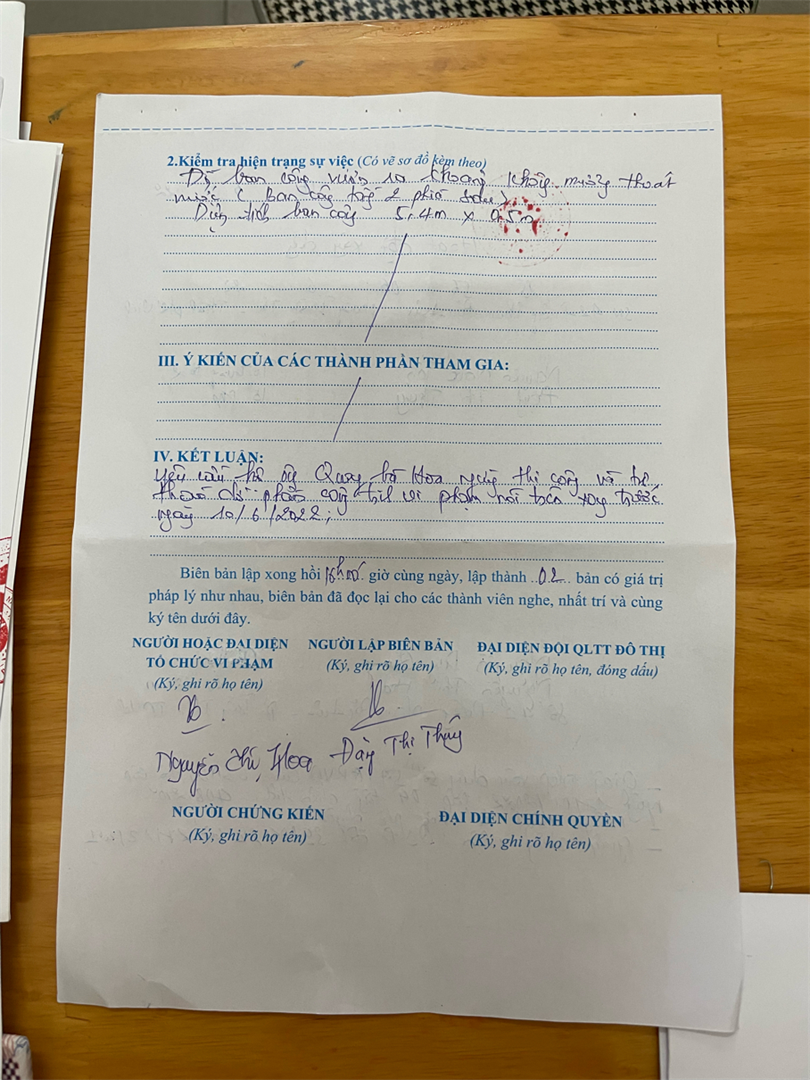 2.Kiểm tra hiện trạng sự việc (Có vẽ sơ đồ kèm theo)
Đổ ban công vươn ra khoảng không mương thoát
nước ( Ban công tầng 2 phía sau)
Diện tích ban công 5,4m x 0,5m
III. Ý KIẾN CỦA CÁC THÀNH PHẦN THAM GIA:
IV. KẾT LUẬN:
Yêu cầu hộ ông Quang bà Hoa ngừng thi công và
tháo dỡ phần công trình vi phạm nói trên xong trước
ngày 10/6/2022;
Biên bản lập xong hồi 16h00 giờ cùng ngày, lập thành 02 bản có giá trị
pháp lý như nhau, biên bản đã đọc lại cho các thành viên nghe, nhất trí và cùng
ký tên dưới đây.
NGƯỜI HOẶC ĐẠI DIỆN
TỔ CHỨC VI PHẠM
(Ký, ghi rõ họ tên)
NGƯỜI LẬP BIÊN BẢN
(Ký, ghi rõ họ tên)
ĐẠI DIỆN ĐỘI QLTT ĐÔ THỊ
(Ký, ghi rõ họ tên, đóng dấu)
Nguyễn Chí Hoa Đặng Thị Thúy
NGƯỜI CHỨNG KIẾN
(Ký, ghi rõ họ tên)
ĐẠI DIỆN CHÍNH QUYỀN
(Ký, ghi rõ họ tên)